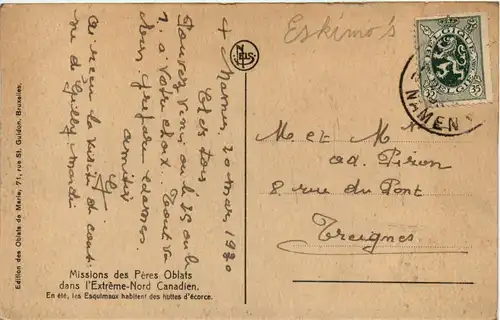 + Namur, 20 mai, 1930
Chers tous
Pouvez venir ou le 25 ou le
1. à votre choix. Tout va
bien. préparer examens.
amitiés
Ai reçu la visite d
de Gilly. mardi
Missions des Pères Oblats
dans l'Extrême-Nord Canadien.
En été, les Esquimaux habitent des huttes d'écorce.
Edition des Oblats de Marie, 71, rue St. Guidon, Bruxelles.
NELS
Eskimo's
BELGIQUE
BELGIE
35 35
NAMEN
M et M
ad. Piron
8 rue du Pont
Treignes